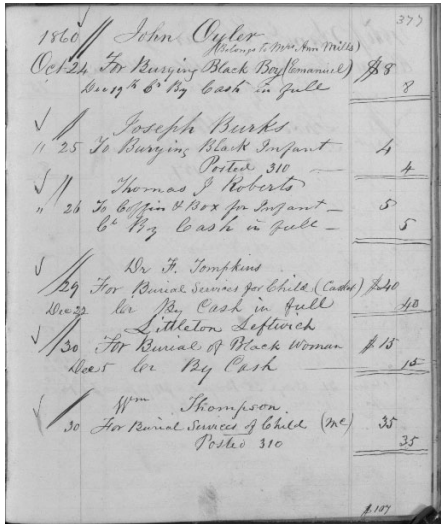 377
1860 // John Oyler
(Belongs to Mrs Ann Mills)
Oct 24 For Burying Black Boy (Emanuel) $8
Dec 19th Cr By Cash in full 8
Joseph Burks
" 25 To Burying Black Infant 4
Posted 310 4
Thomas J Roberts
" 26 To Coffin & Box for Infant 5
Cr By Cash in full 5
Dr F. Tompkins
29 For Burial Services for Child $40
Dec 22 Cr By Cash in full 40
Littleton Leftwich
30 For Burial of Black Woman $15
Dec 5 Cr By Cash 15
Wm Thompson.
30 For Burial Services of Child (Mc) 35
Posted 310 35
$107